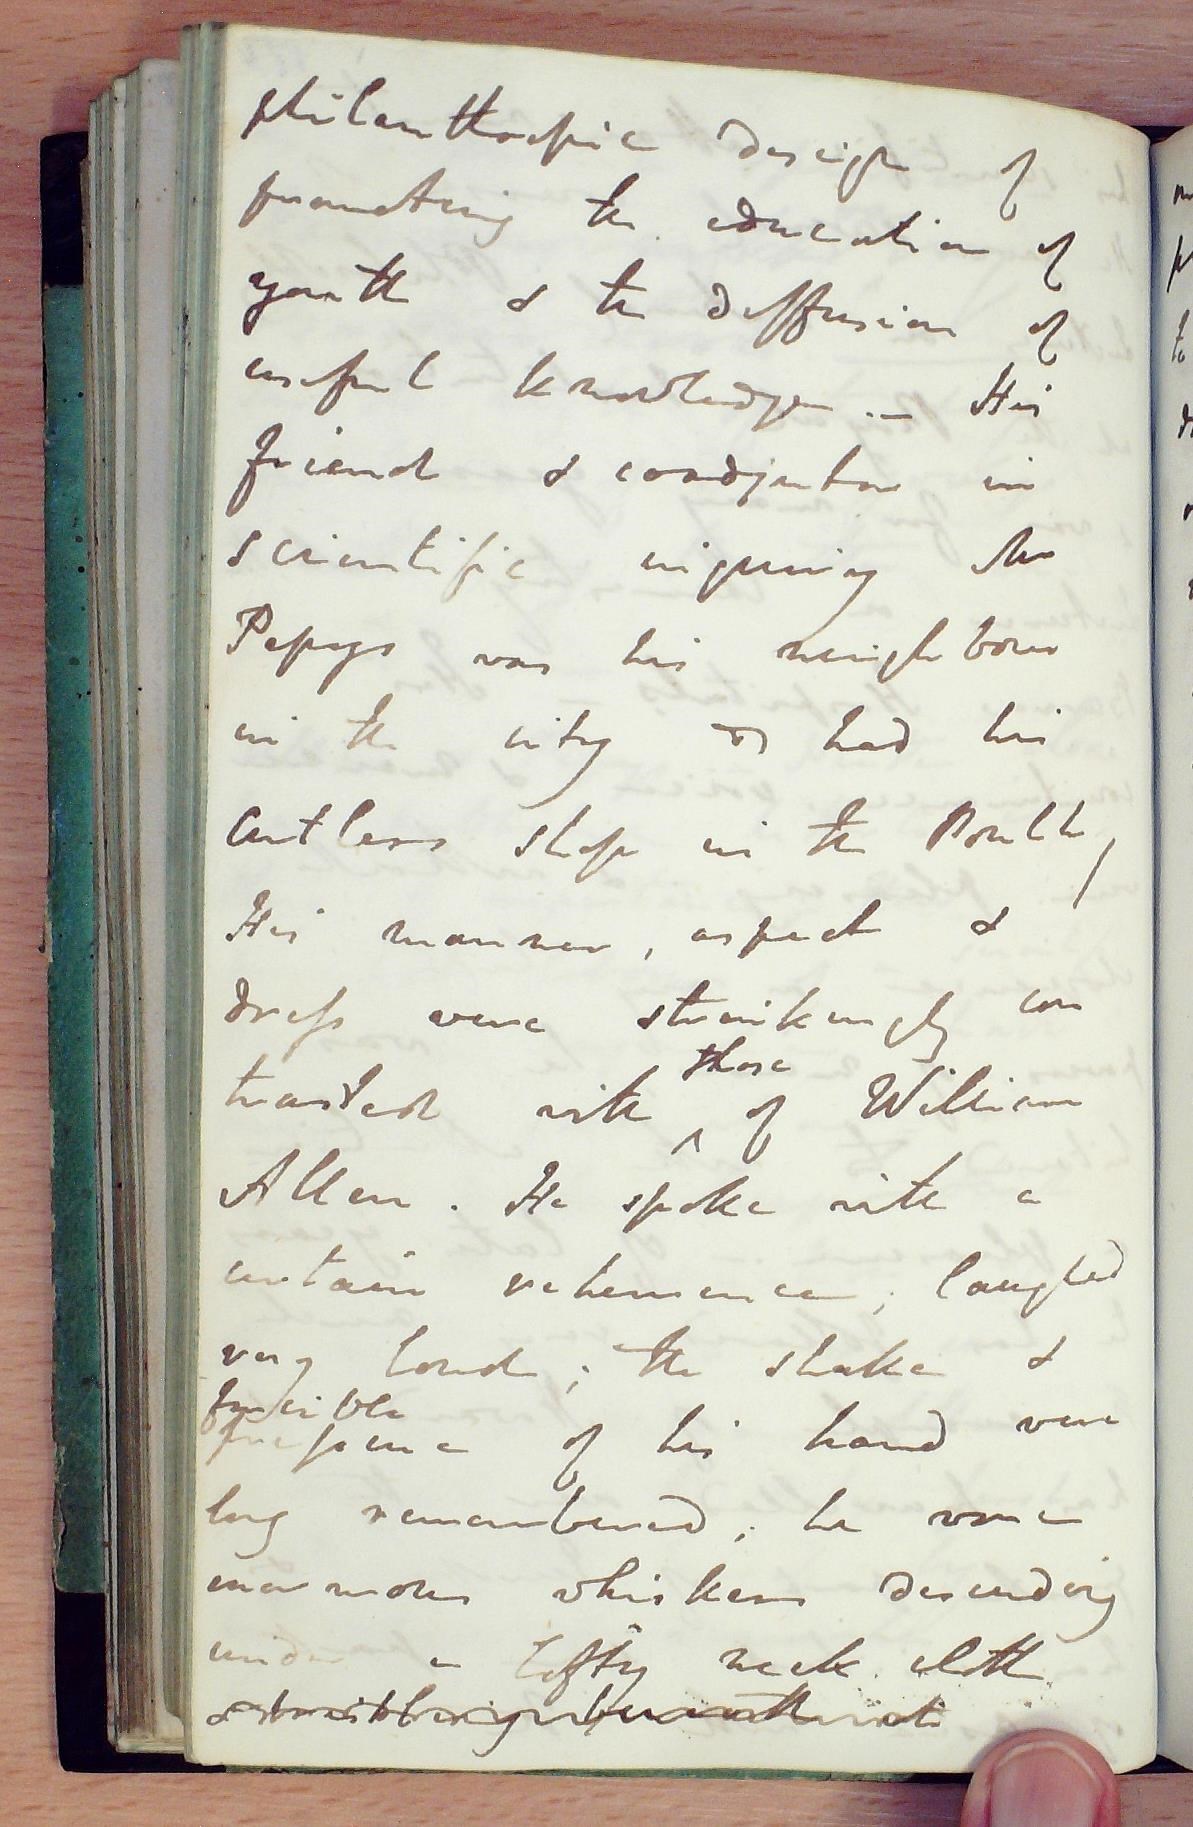 philanthropic design of
promoting the education of
youth & the diffusion of
useful knowledge. — His
friend & coadjutor in
scientific inquiry Mr
Pepys was his neighbour
in the city & had his
cutlers shop in the Poultry
His manner, aspect &
dress were strikingly con
trasted with those of William
Allen. He spoke with a
certain vehemence, laughed
very loud; the shake &
forcible
pressure of his hand were
long remembered; he wore
enormous whiskers descending
under a lofty neck cloth
&